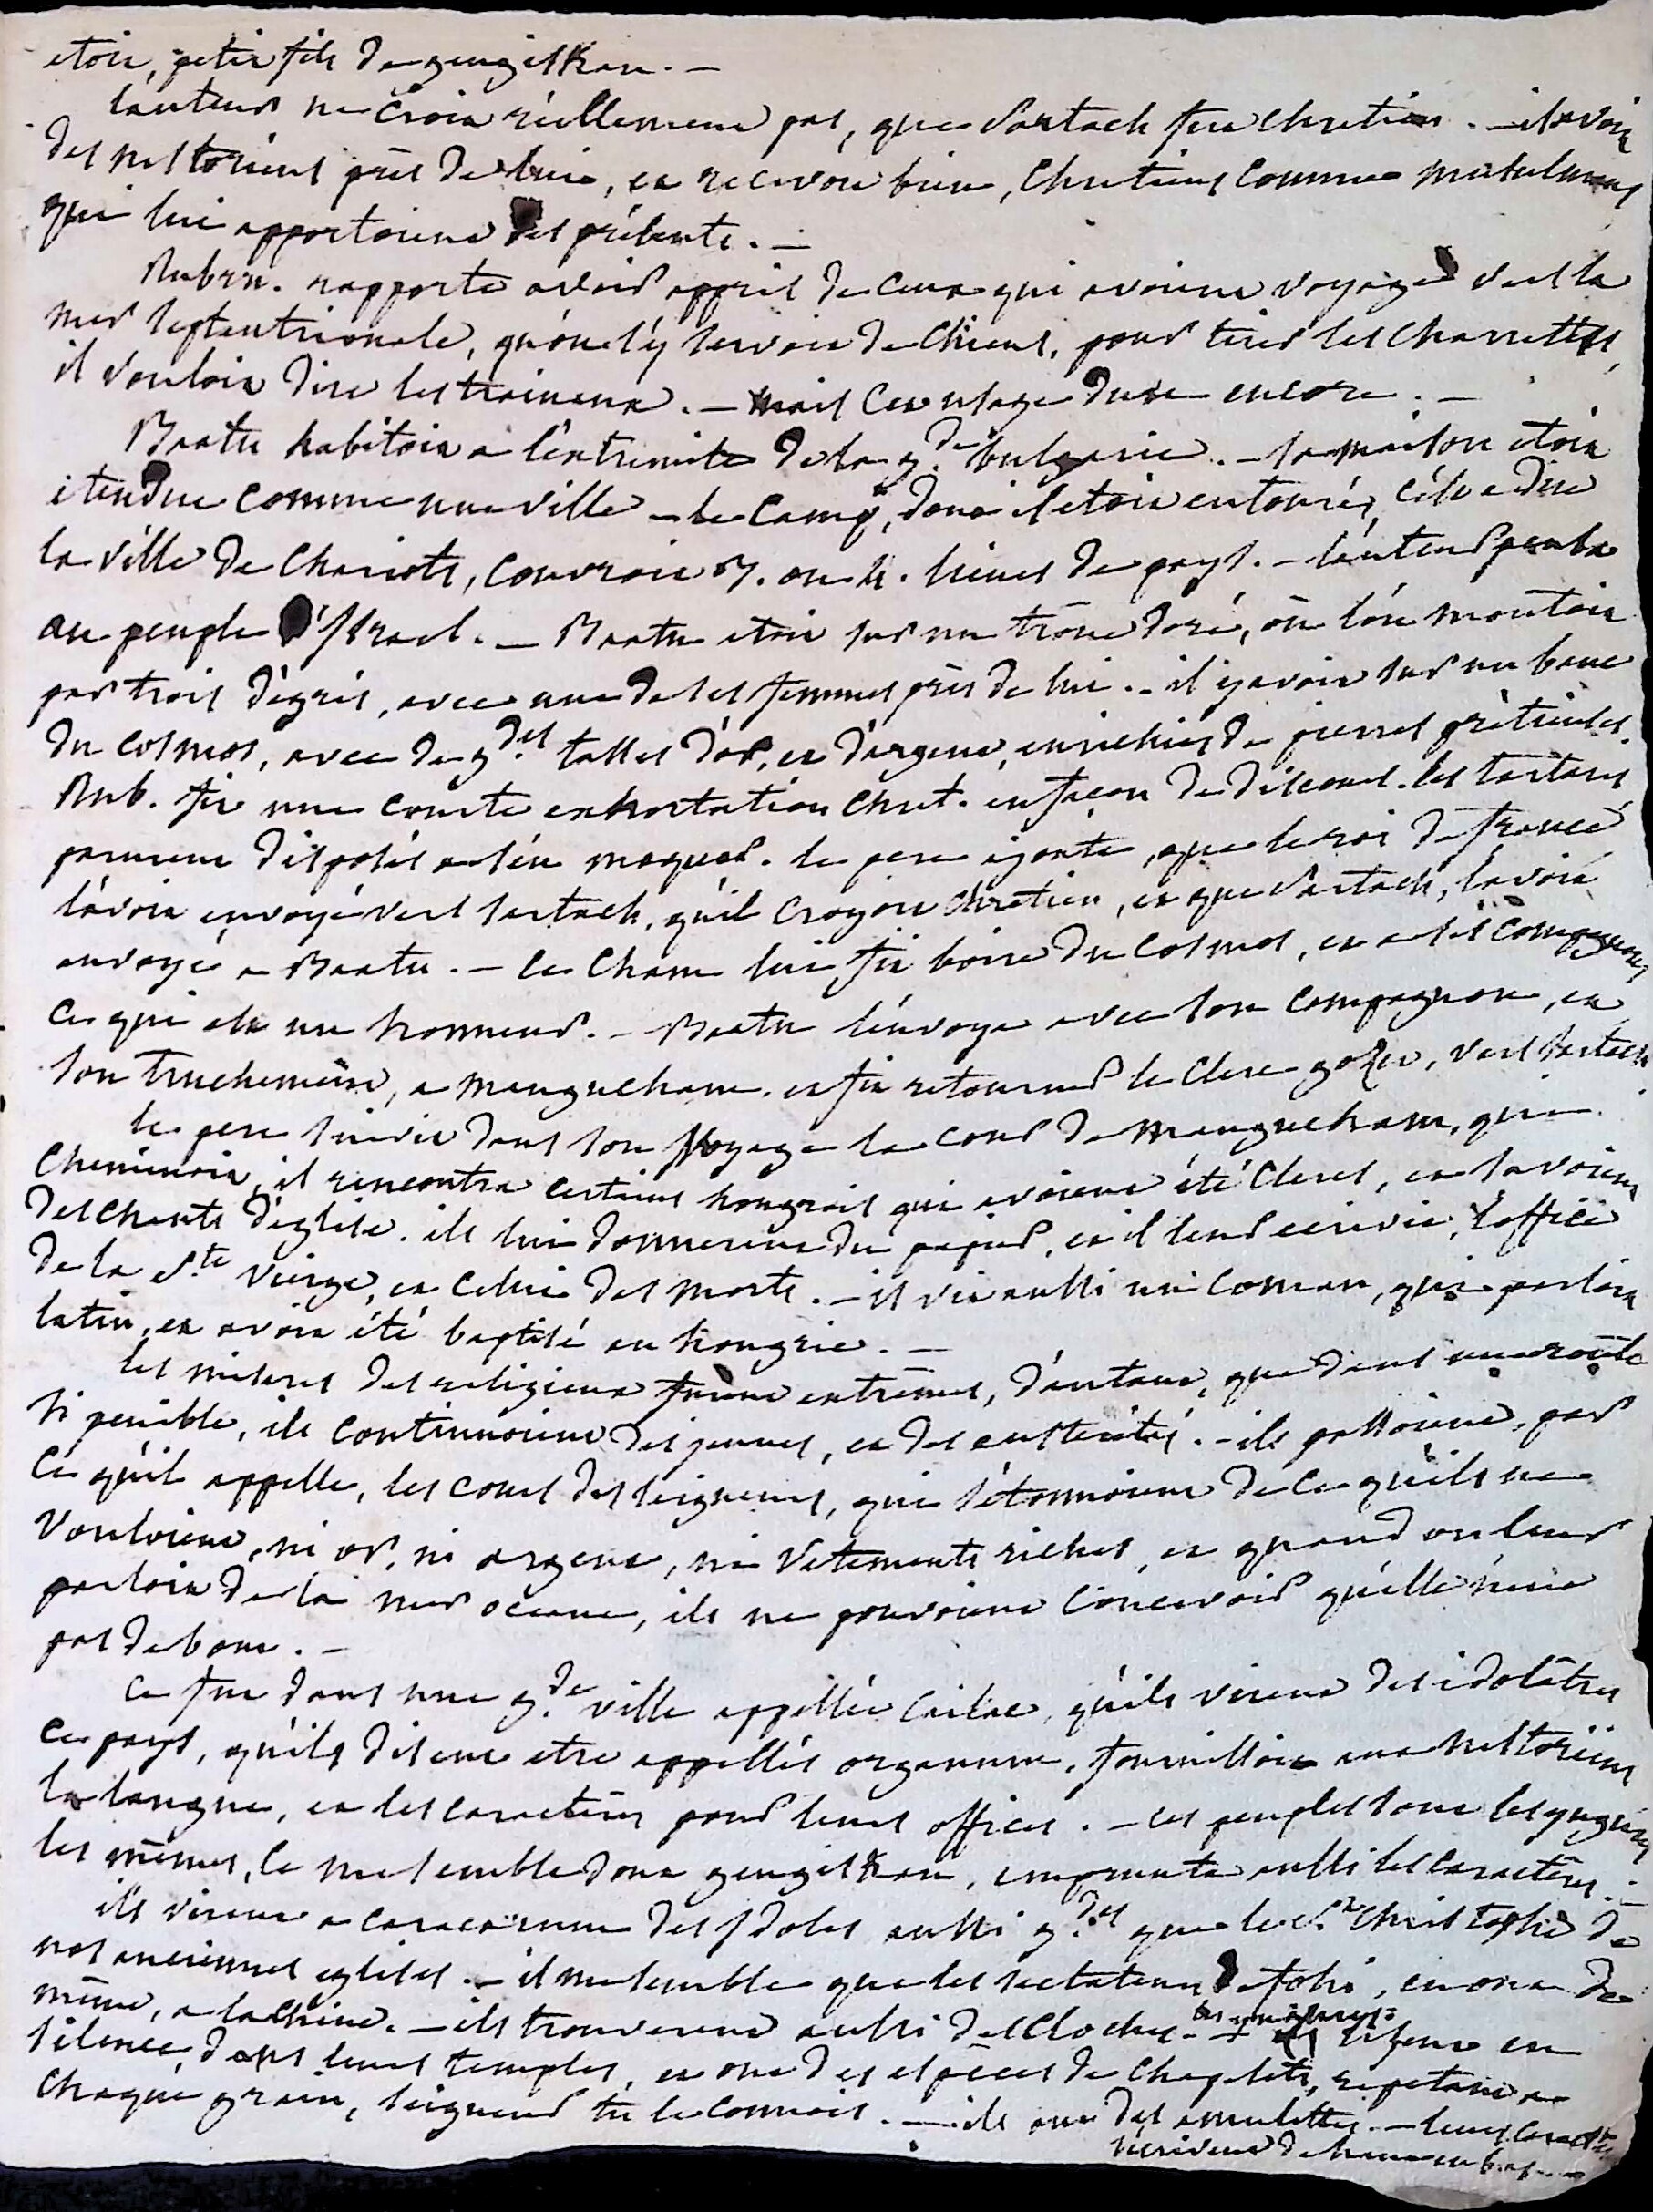 etoit, petit fils de gengiskan. —
l'auteur ne croit réellement pas, que Sartach fut chretien. — il avoit
des nestoriens près de lui, et recevoit bien, chretiens comme musulmans
qui lui apportoient des présents. —
Rubru. rapporte avoir appris de ceux qui avoient voyagé vers la
mer septentrionale, qu'on s'y servoit de chiens, pour tirer les charrettes,
il vouloit dire les traineaux. — mais cet usage dure encore. —
Baatu habitoit a l'extremite de la g.de bulgarie. — sa maison etoit
étendue comme une ville — le camp, dont il etoit entouré, c'est a dire
la ville de chariots, couvroit 3. ou 4. lieues de pays. — l'auteur pensa
au peuple d'Israel. — Baatu etoit sur un trône doré, où l'on montoit
par trois dégrés, avec une de ses femmes près de lui. — il y avoit sur un banc
du cosmos, avec de g.des tasses d'or, et d'argent, enrichies de pierres prétieuses.
Rub. fit une courte exhortation chret. en façon de discours. les tartares,
parurent disposés a s'en moquer. le pere ajoute, que le roi de france
l'avoit envoyé vers sartach, qu'il croyoit chrétien, et que Sartach, l'avoit
envoyé a Baatu. — le Cham lui fit boire du cosmos, et a ses compagnons
ce qui est un honneur. — Baatu l'envoya avec son compagnon, et
son truchement, a Mangucham. et fit retourner le clerc gozet, vers sartach.
le pere suivit dans son voyage la cour de Manguecham, qui
cheminoit, il rencontra certains hongrois qui avoient été clercs, et savoient
des chants d'église. ils lui donnerent du papier, et il leur ecrivit, l'office
de la S.te vierge, et celui des morts. — il vit aussi un Coman, qui parloit
latin, et avoit été baptisé en hongrie. —
les miseres des religieux furent extrêmes, d'autant, que dans une route
si penible, ils continuoient des jeunes, et des austerités. — ils passoient, par
ce qu'il appelle, les cours des seigneurs, qui s'étonnoient de ce qu'ils ne
vouloient, ni or, ni argent, ni vetements riches, et quand on leur
parloit de la mer oceane, ils ne pouvoient concevoir qu'elle n'eut
pas de bout. —
ce fut dans une g.de ville appellée Cailac, qu'ils virent des idolâtres
ce pays, qu'ils disent etre appellés organum, fournissoit aux nestoriens
la langue, et les caractères pour leurs offices. — ces peuples sont les
les mêmes, ce me semble dont gengiskan, emprunta aussi les caractères. —
ils virent a caracorum des Idoles aussi g.des que le S.t Christophe de
nos anciennes eglises. — il me semble que les sectateurs de fohi, en ont de
même, a la chine. — ils trouverent aussi des cloches. — lisent en
silence, dans leurs temples, et ont des espèces de chapelets, repetant a
chaque grain, seigneur tu le connois. — ils ont des amulettes. — leurs caractères
s'ecrivent de haut en bas. —